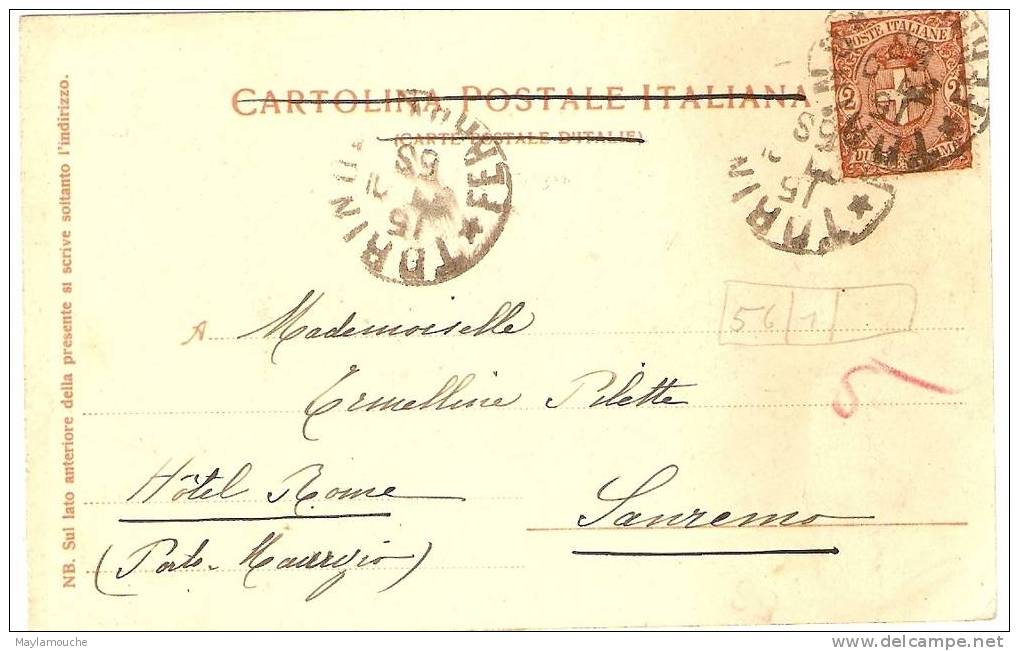 CARTOLINA POSTALE ITALIANA
(CARTE POSTALE D'ITALIE)
POSTE ITALIANE
2 2
TORINO
FERROVIA
TORINO
NB. Sul lato anteriore della presente si scrive soltanto l'indirizzo.
56 1
A Mademoiselle
Ermelline Pilette
Hôtel Rome Sanremo
(Porto-Maurizio)
Maylamouche
www.delcampe.net